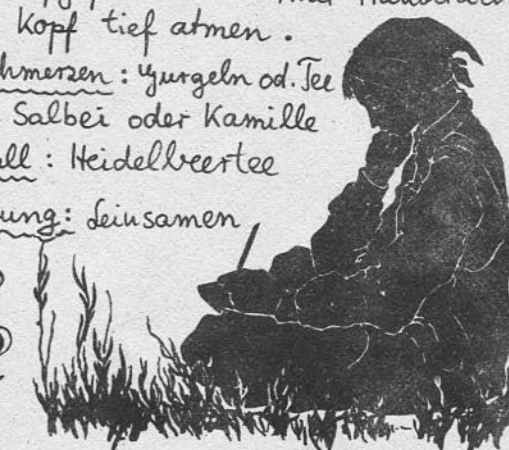 Kopf tief atmen.
hmerzen: Gurgeln od. Tee
Salbei oder Kamille
all: Heidelbeertee
ung: Leinsamen